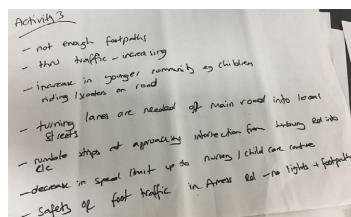 Activity 3
- not enough footpaths
- thru traffic - increasing
- increase in younger community eg children
riding / scooters on road
- turning lanes are needed off main road into local
streets
- rumble strips at approaching intersection from Rd into
etc
- decrease in speed limit up to nursery / child care centre
- safety of foot traffic in Rd - no lights + footpath